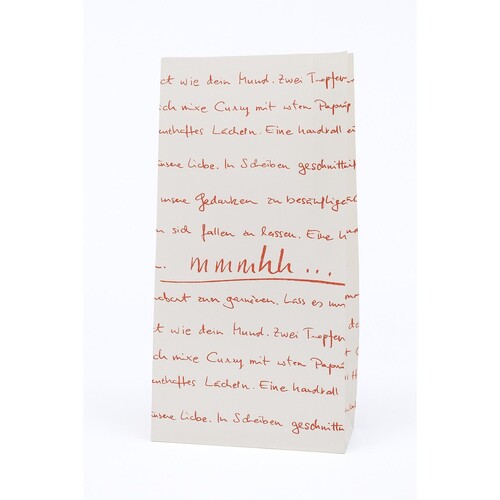 ct wie dein Mund. Zwei Tropfen
ich mixe Curry mit rotem Papri
enhaftes Lächeln. Eine handvoll
unsere Liebe. In Scheiben geschnitten
unsere Gedanken zu
en sich fallen zu lassen. Eine
mmmhh...
zu garnieren. Lass es
ct wie dein Mund. Zwei Tropfen
ich mixe Curry mit rotem Papri
enhaftes Lächeln. Eine handvoll
unsere Liebe. In Scheiben geschnitten